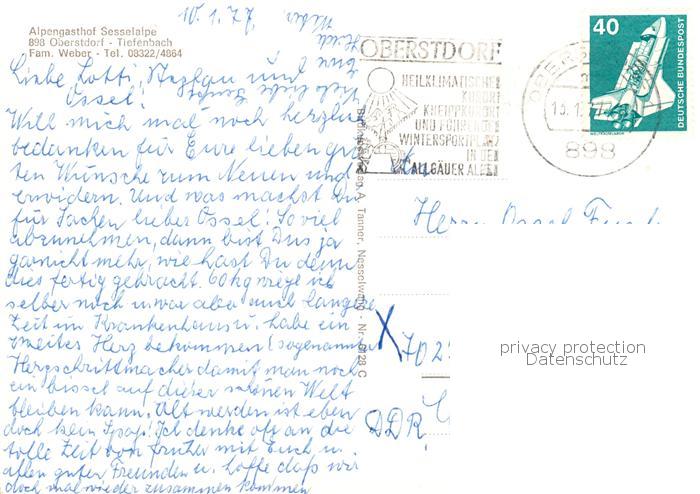 10. 1. 77
Alpengasthof Sesselalpe
898 Oberstdorf - Tiefenbach
Fam. Weber - Tel. 08322/4864
Liebe Lotti, und
Ossel!
Will mich mal noch herzlich
bedanken für Eure lieben gu
ten Wünsche zum Neuen und
erwidern. Und was machst Du
für Sachen lieber Ossel! So viel
abzunehmen, dann bist Du's ja
garnicht mehr, wie hast Du denn
dies fertig gebracht. 60 kg wiege ich
selber noch u. war aber auch lange
Zeit im Krankenhaus u. habe ein
zweites Herz bekommen (sogenannter
Herzschrittmacher damit man noch
ein bissel auf dieser schönen Welt
bleiben kann. Alt werden ist eben
doch kein Spaß! Ich denke oft an die
tolle Zeit von früher mit Euch u.
allen guten Freunden u. hoffe daß wir
doch mal wieder zusammen kommen
OBERSTDORF
HEILKLIMATISCHER
KURORT
KNEIPPKURORT
UND FÜHRENDER
WINTERSPORTPLATZ
IN DEN
ALLGÄUER ALPEN
A. Tanner, Nesselwang
40
DEUTSCHE BUNDESPOST
WELTRAUMLABOR
898
Herrn Ossel
X 702
DDR
privacy protection
Datenschutz